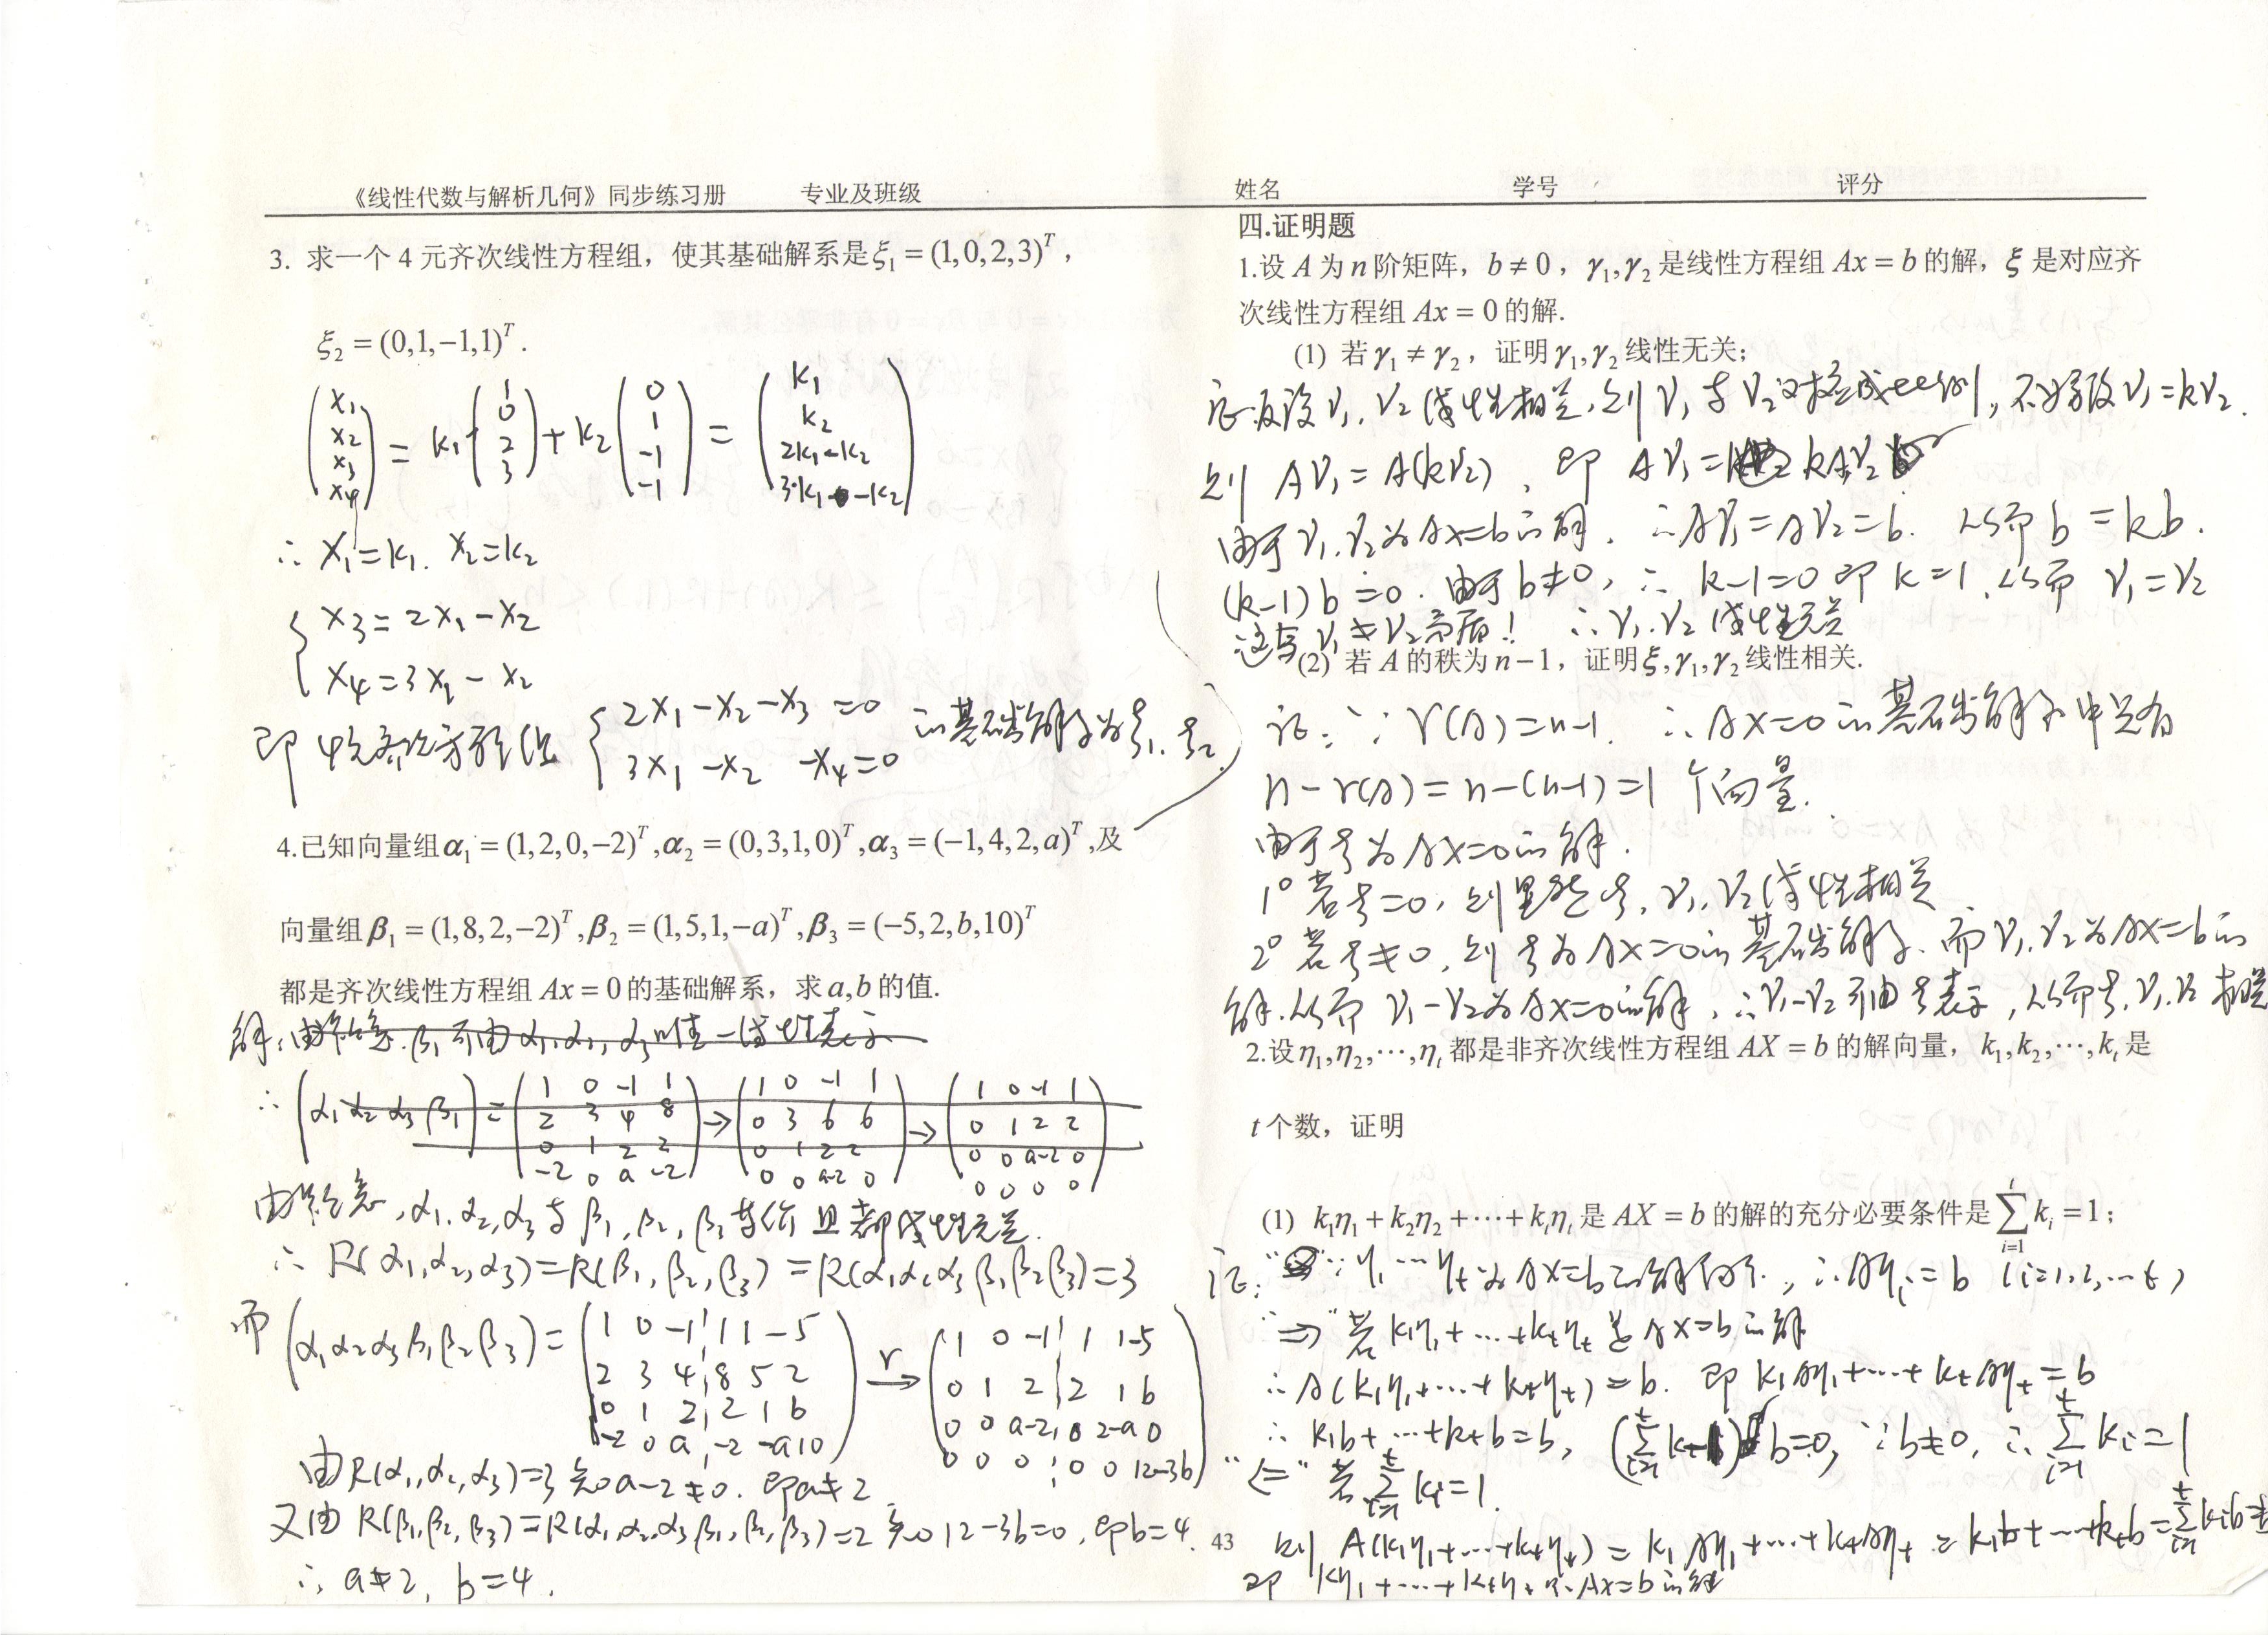 《线性代数与解析几何》同步练习册 专业及班级
3. 求一个 4 元齐次线性方程组，使其基础解系是 ξ₁ = (1,0,2,3)ᵀ，
ξ₂ = (0,1,−1,1)ᵀ.
(x₁ x₂ x₃ x₄) = k₁(1 0 2 3) + k₂(0 1 −1 −1) = (k₁ k₂ 2k₁−k₂ 3k₁−k₂)
∴ x₁=k₁. x₂=k₂
{ x₃=2x₁−x₂
x₄=3x₁−x₂
即 4元齐次方程组 { 2x₁−x₂−x₃=0 的基础解系为ξ₁. ξ₂.
3x₁−x₂ −x₄=0
4.已知向量组 α₁ = (1,2,0,−2)ᵀ, α₂ = (0,3,1,0)ᵀ, α₃ = (−1,4,2,a)ᵀ,及
向量组 β₁ = (1,8,2,−2)ᵀ, β₂ = (1,5,1,−a)ᵀ, β₃ = (−5,2,b,10)ᵀ
都是齐次线性方程组 Ax = 0 的基础解系，求 a,b 的值.
解:由题意. β₁可由α₁.α₂, α₃唯一线性表示
∴ (α₁ α₂ α₃ β₁) = (1 0 −1 1 → (1 0 −1 1 → (1 0 −1 1
2 3 4 8 0 3 6 6 0 1 2 2
0 1 2 2 0 1 2 2 0 0 a−2 0
−2 0 a −2) 0 0 a−2 0) 0 0 0 0)
由题意,α₁.α₂,α₃与β₁,β₂,β₃等价且都线性无关.
∴ R(α₁,α₂,α₃)=R(β₁,β₂,β₃)=R(α₁α₂α₃β₁β₂β₃)=3
而 (α₁α₂α₃β₁β₂β₃) = (1 0 −1 1 1 −5 r→ (1 0 −1 1 1 −5
2 3 4 8 5 2 0 1 2 2 1 b
0 1 2 2 1 b 0 0 a−2 0 2−a 0
−2 0 a −2 −a 10) 0 0 0 0 0 12−3b)
由R(α₁,α₂,α₃)=3知a−2≠0. 即a≠2.
又由 R(β₁,β₂,β₃)=R(α₁,α₂,α₃β₁,β₂,β₃)=2知12−3b=0,即b=4.
∴ a≠2, b=4.
43
姓名 学号 评分
四.证明题
1.设 A 为 n 阶矩阵，b ≠ 0，γ₁,γ₂ 是线性方程组 Ax = b 的解，ξ 是对应齐
次线性方程组 Ax = 0 的解.
(1) 若 γ₁ ≠ γ₂，证明 γ₁,γ₂ 线性无关；
证:反设γ₁.γ₂线性相关,则γ₁与γ₂对应成比例,不妨设γ₁=kγ₂.
则 Aγ₁=A(kγ₂), 即 Aγ₁=kAγ₂
由于γ₁.γ₂为Ax=b的解. ∴Aγ₁=Aγ₂=b. 从而 b=kb.
(k−1)b=0. 由于b≠0, ∴ k−1=0即k=1.从而 γ₁=γ₂
这与γ₁≠γ₂矛盾! ∴γ₁.γ₂线性无关
(2) 若 A 的秩为 n−1，证明 ξ,γ₁,γ₂ 线性相关.
证: ∵r(A)=n−1. ∴Ax=0的基础解系中只有
n−r(A)=n−(n−1)=1 个向量.
由于ξ为Ax=0的解.
1° 若ξ=0,则显然ξ,γ₁.γ₂线性相关
2° 若ξ≠0,则ξ为Ax=0的基础解系.而γ₁.γ₂为Ax=b的
解.从而γ₁−γ₂为Ax=0的解,∴γ₁−γ₂可由ξ表示,从而ξ,γ₁.γ₂相关
2.设 η₁,η₂,⋯,ηₜ 都是非齐次线性方程组 AX = b 的解向量，k₁,k₂,⋯,kₜ 是
t 个数，证明
(1) k₁η₁ + k₂η₂ + ⋯ + kₜηₜ 是 AX = b 的解的充分必要条件是 ∑ᵢ₌₁ᵗ kᵢ = 1；
证: ∵η₁…ηₜ为Ax=b的解向量, ∴Aηᵢ=b (i=1,2,…t)
"⇒" 若k₁η₁+…+kₜηₜ是Ax=b的解
∴A(k₁η₁+…+kₜηₜ)=b. 即 k₁Aη₁+…+kₜAηₜ=b
∴ k₁b+…+kₜb=b, (∑ᵢ₌₁ᵗ kᵢ−1)b=0, ∵b≠0, ∴∑ᵢ₌₁ᵗ kᵢ=1
"⇐" 若∑ᵢ₌₁ᵗ kᵢ=1.
则 A(k₁η₁+…+kₜηₜ)=k₁Aη₁+…+kₜAηₜ=k₁b+…+kₜb=∑ᵢ₌₁ᵗ kᵢb=
即 k₁η₁+…+kₜηₜ为Ax=b的解